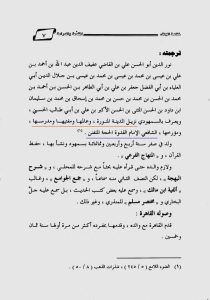 ٧
ترجمته :
نور الدين أبو الحسن علي بن القاضي عفيف الدين عبد الله بن أحمد بن
علي بن عيسى بن محمد بن عيسى بن محمد بن عيسى بن جلال الدين أبي
العلياء بن أبي الفضل جعفر بن علي بن أبي الطاهر بن الحسن بن أحمد بن
محمد بن الحسن بن محمد بن إسحاق بن محمد بن سليمان
بن الحسن بن علي بن أبي طالب الحسني ،
ويعرف بالسمهودي نزيل المدينة المنورة ، وعالمها ومفتيها ومدرسها ،
ومؤرخها ، الشافعي الإمام القدوة الحجة المتفنن .
ولد في صفر سنة أربع وأربعين وثمانمائة بسمهود ونشأ بها ، حفظ
القرآن ، و « المنهاج الفرعي » .
ولازم والده حتى قرأه عليه بحثاً مع شرحه للمحلي ، و « شرح
البهجة » لكن النصف الثاني منه سماعاً ، و « جمع الجوامع » ، وغالب
« ألفية ابن مالك » ، وسمع عليه بعض كتب الحديث ، بل سمع عليه جلّ
البخاري و « مختصر مسلم » للمنذري ، وغير ذلك .
وصوله القاهرة :
قدم القاهرة مع والده ، وقدمها بمفرده أكثر من مرة أولها سنة ثمان
وخمسين .
(١) الضوء اللامع ( ٥ / ٢٤٥ ) ، شذرات الذهب ( ٨ / ٥٠ ) .